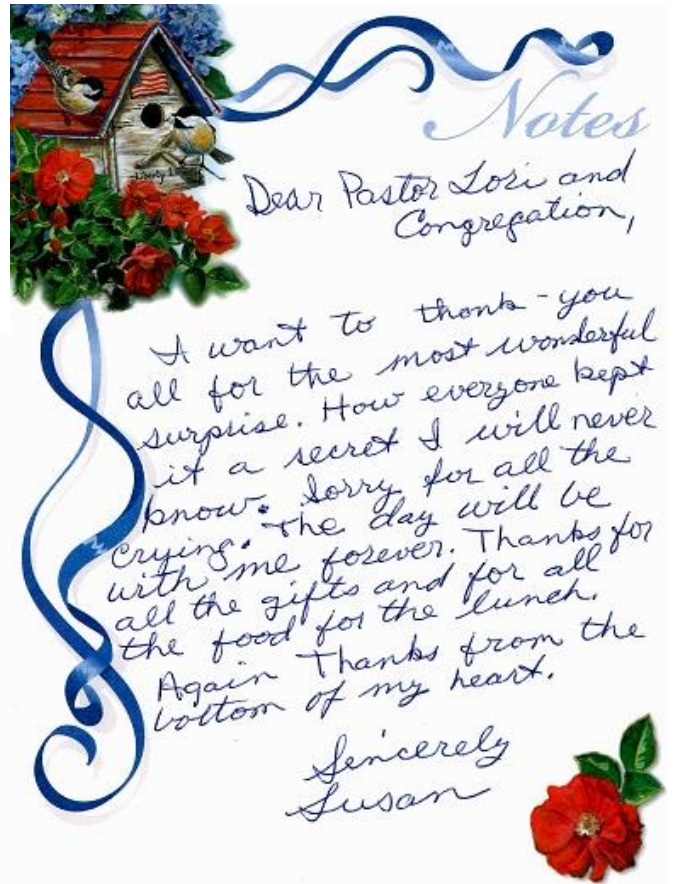 Notes
Liberty
Dear Pastor Lori and
Congregation,
I want to thank-you
all for the most wonderful
surprise. How everyone kept
it a secret I will never
know. Sorry for all the
crying. The day will be
with me forever. Thanks for
all the gifts and for all
the food for the lunch.
Again Thanks from the
bottom of my heart.
Sencerely
Susan